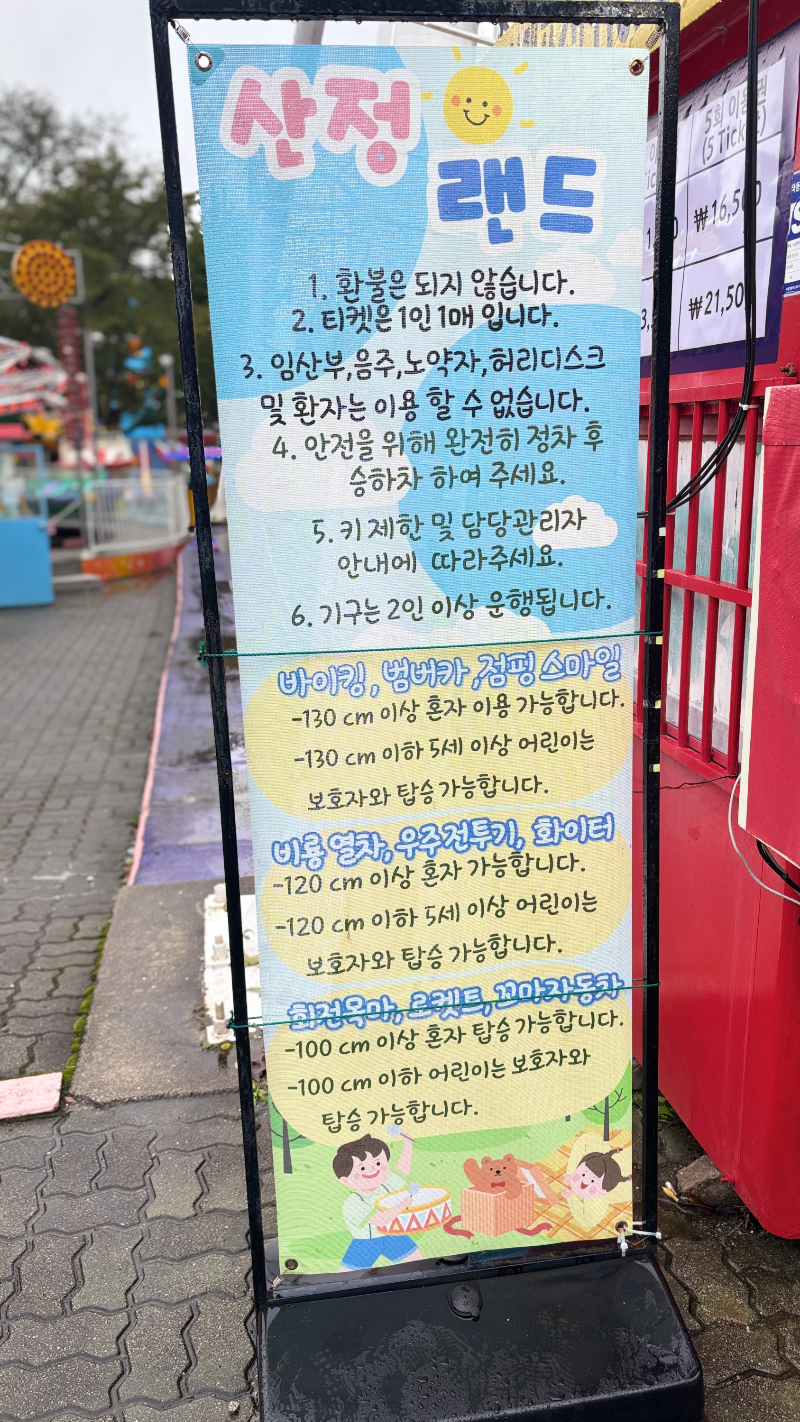 산정
랜드
1. 환불은 되지 않습니다.
2. 티켓은 1인 1매 입니다.
3. 임산부,음주,노약자,허리디스크
및 환자는 이용 할 수 없습니다.
4. 안전을 위해 완전히 정차 후
승하차 하여 주세요.
5. 키 제한 및 담당관리자
안내에 따라주세요.
6. 기구는 2인 이상 운행됩니다.
바이킹, 범버카,점핑 스마일
-130 cm 이상 혼자 이용 가능합니다.
-130 cm 이하 5세 이상 어린이는
보호자와 탑승 가능합니다.
비룡 열차, 우주전투기, 화이터
-120 cm 이상 혼자 가능합니다.
-120 cm 이하 5세 이상 어린이는
보호자와 탑승 가능합니다.
회전목마, 로켓트,꼬마자동차
-100 cm 이상 혼자 탑승 가능합니다.
-100 cm 이하 어린이는 보호자와
탑승 가능합니다.
5회
(5
₩16,5
₩21,50